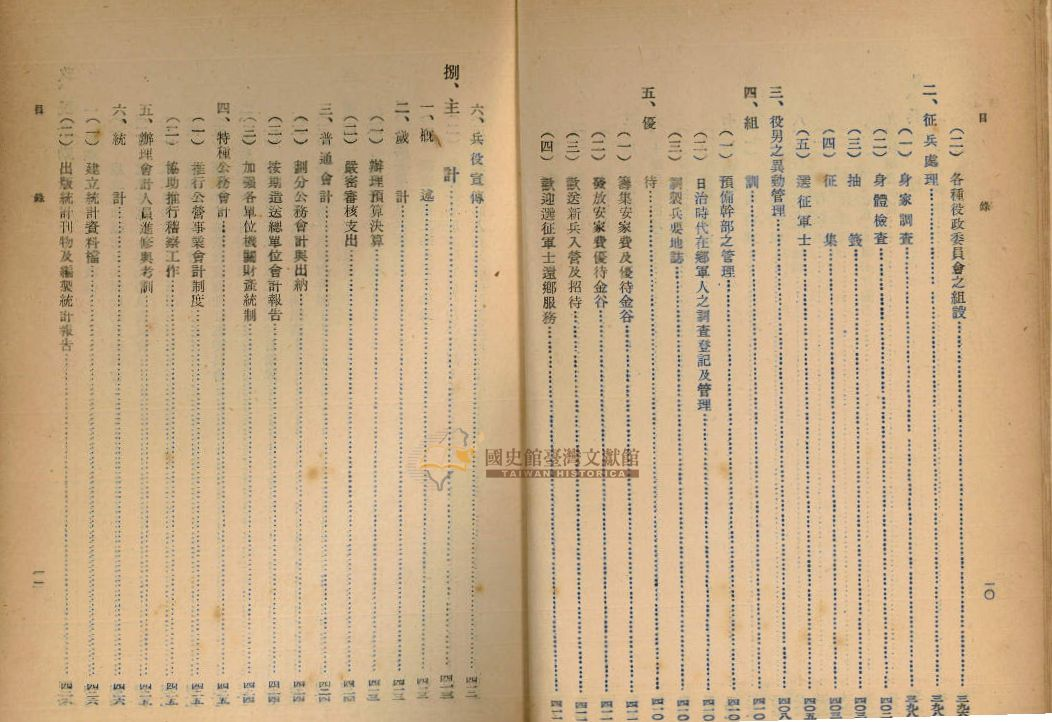 目錄
(二) 各種役政委員會之組設 三九
二、征兵處理 三九八
(一) 身家調查 三九八
(二) 身體檢查 四〇
(三) 抽籤 四〇三
(四) 征集 四〇三
(五) 選征軍士 四〇五
三、役男之異動管理 四〇八
四、組訓 四一〇
(一) 預備幹部之管理 四一〇
(二) 日治時代在鄉軍人之調查登記及管理 四一〇
(三) 調製兵要地誌 四一〇
五、優待 四一〇
(一) 籌集安家費及優待金谷 四一一
(二) 發放安家費優待金谷 四一一
(三) 歡送新兵入營及招待 四一一
(四) 歡迎選征軍士還鄉服務 四一二
一〇
六、兵役宣傳 四一二
捌、主計 四一三
一、概述 四一三
二、歲計 四一三
(一) 辦理預算決算 四一三
(二) 嚴密審核支出
三、普通會計 四二四
(一) 劃分公務會計與出納
(二) 按期造送總單位會計報告
(三) 加強各單位機關財產統制
四、特種公務會計
(一) 推行公營事業會計制度
(二) 協助推行稽察工作
五、辦理會計人員進修與考訓
六、統計
(一) 建立統計資料檔
(二) 出版統計刊物及編製統計報告
目錄
一一
國史館臺灣文獻館
TAIWAN HISTORICA